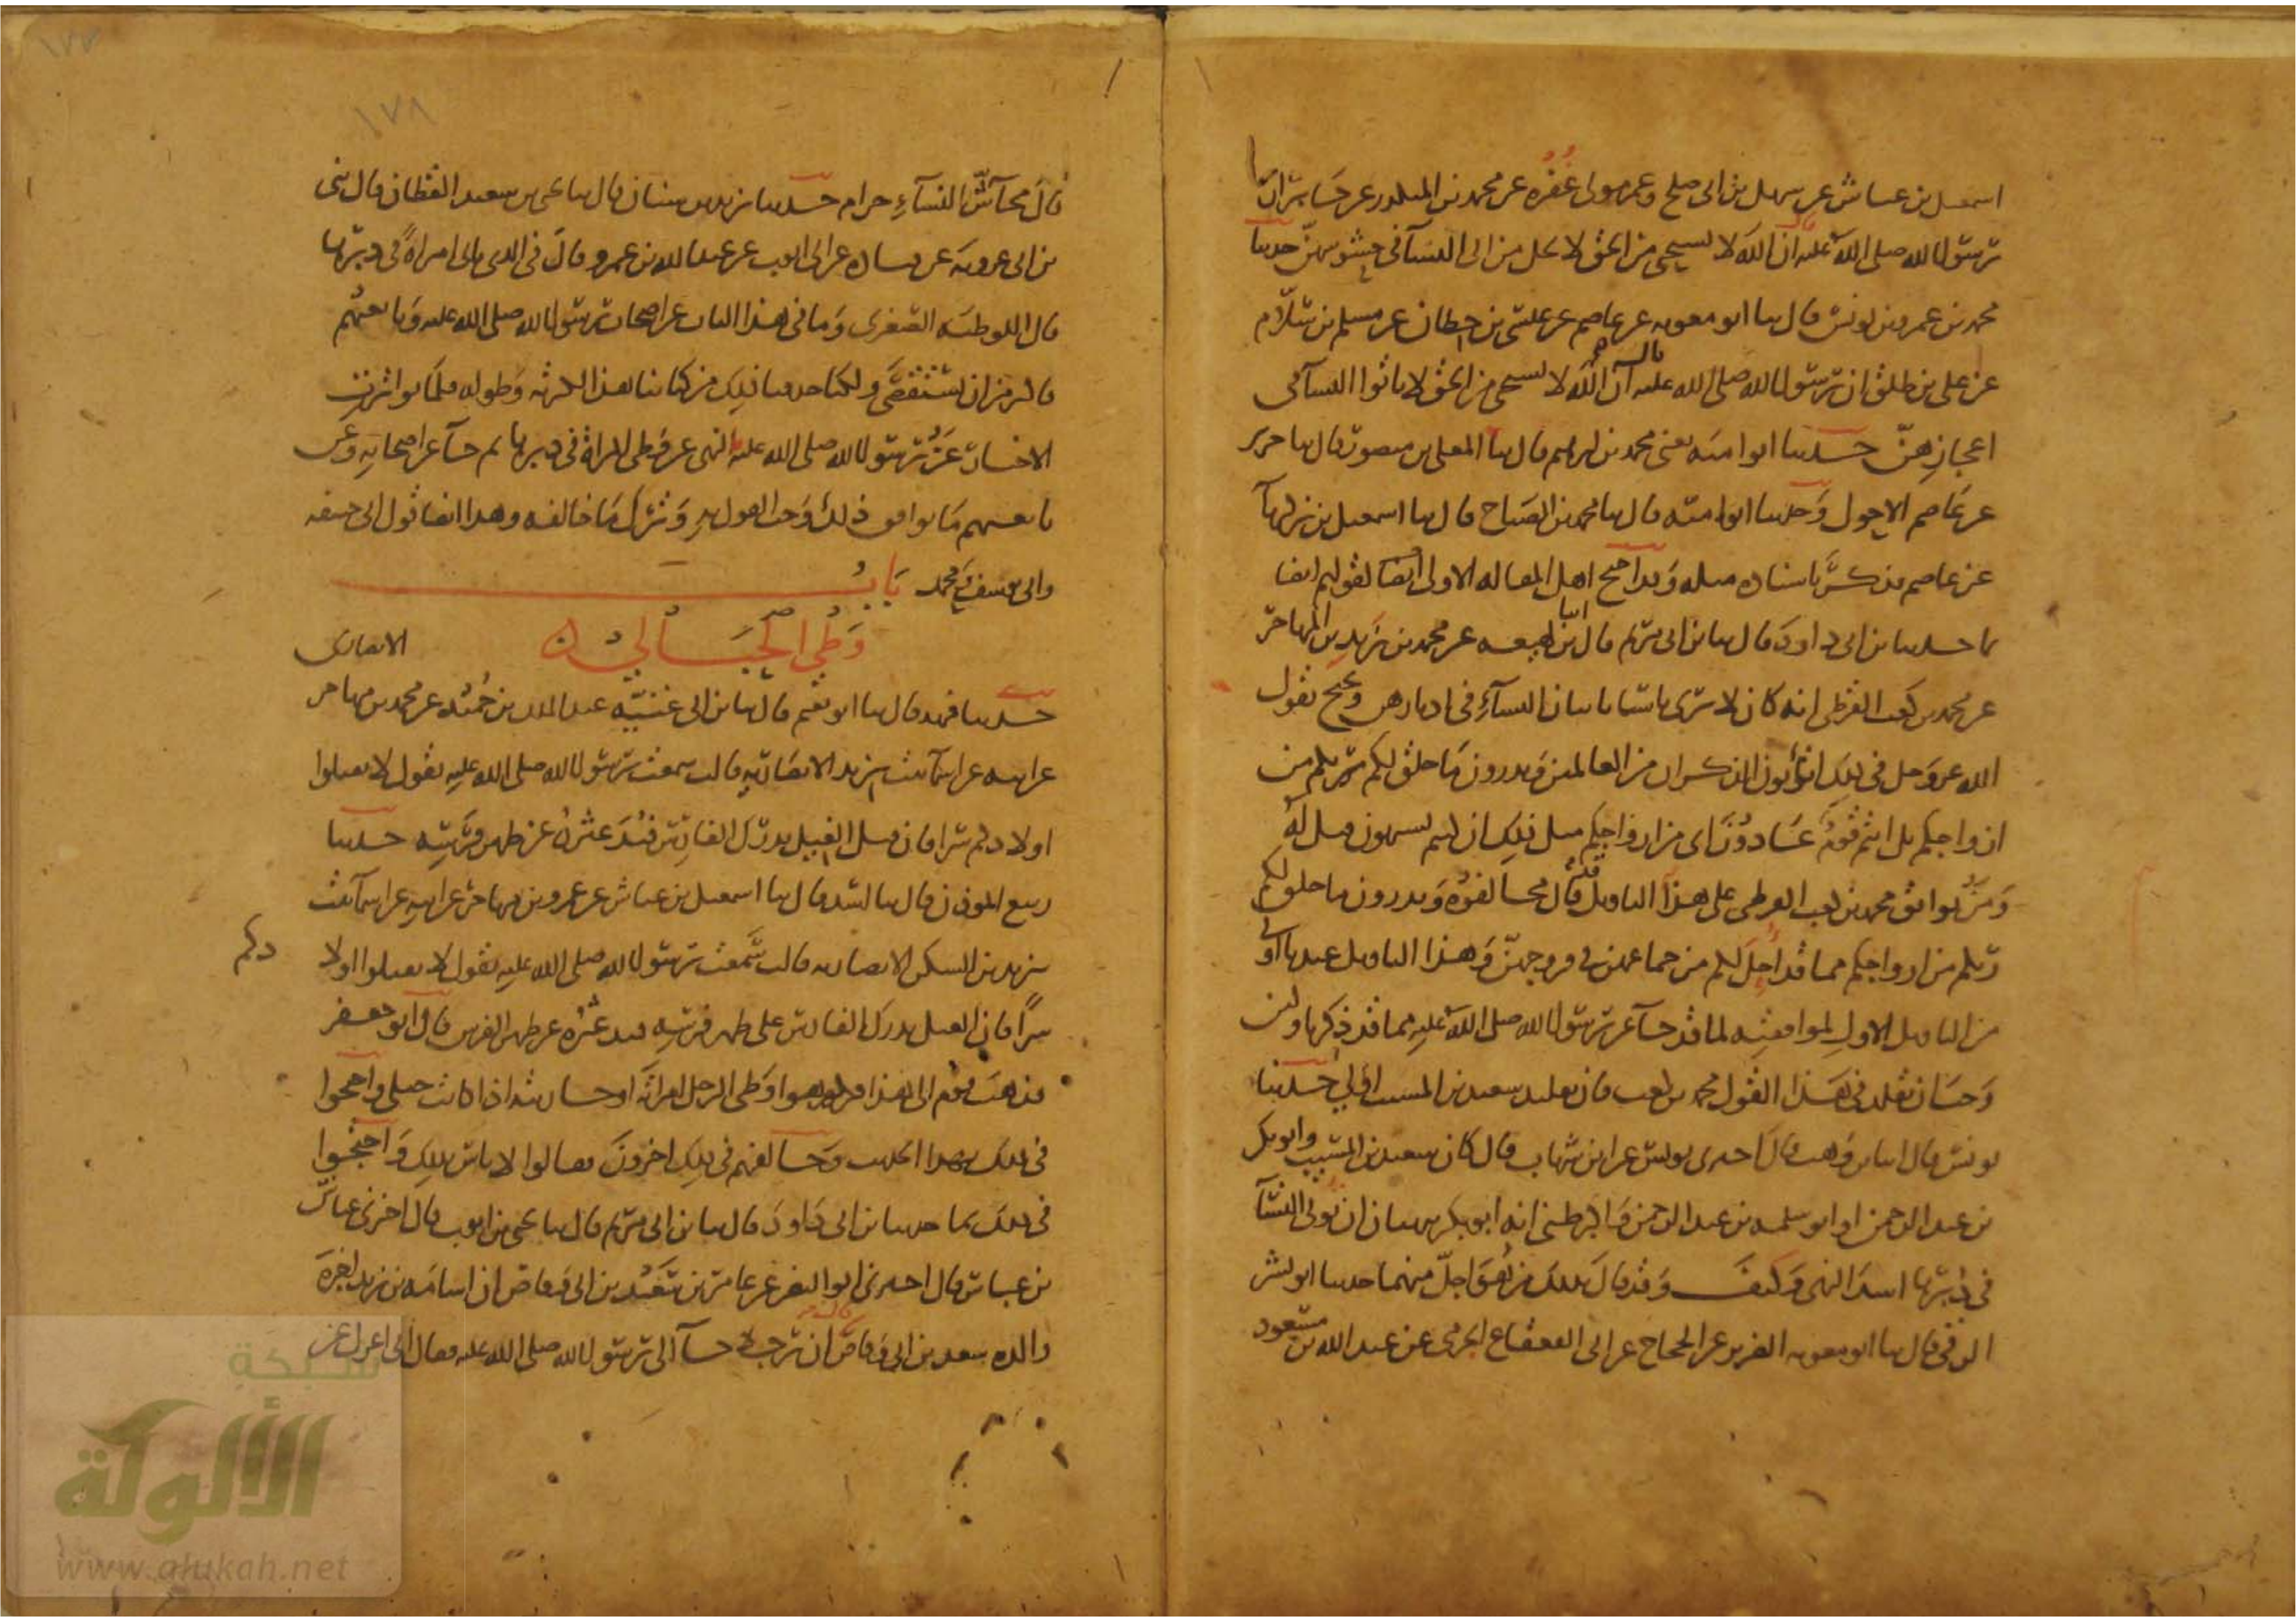 اسمعيل بن عياش عن سهيل بن ابى صلح وعمر مولى غفره عن محمد بن المنكدر عن جابر ان
رسول الله صلى الله عليه قال ان الله لا يستحيى من الحق لا يحل من اتى النسآ فى حشوشهن حدثنا
محمد بن عمرو بن يونس قال ثنا ابو معويه عن عاصم عن عيسى بن حطان عن مسلم بن سلام
عن على بن طلق ان رسول الله صلى الله عليه قال ان الله لا يستحيى من الحق لا ياتوا النسآ فى
اعجازهن حدثنا ابو اميه يعنى محمد بن ابرهيم قال ثنا المعلى بن منصور قال ثنا جرير
عن عاصم الاحول وحدثنا ابو اميه قال ثنا محمد بن الصباح قال ثنا اسمعيل بن زكريآ
عن عاصم فذكر باسناده مثله وقد احتج اهل المقاله الاولى ايضا لقولهم ايضا
بما حدثنا بن ابى داود قال ثنا بن ابى مريم قال انبا بن لهيعه عن محمد بن يزيد بن المهاجر
عن محمد بن كعب القرظى انه كان لا يرى باسا باتيان النسآء فى ادبارهن ويحتج بقول
الله عز وجل فى ذلك اتاتون الذكران من العالمين وتذرون ما خلق لكم ربكم من
ازواجكم بل انتم قوم عادون اى من ازواجكم مثل ذلك ان كنتم تشتهون قيل له
ومن يوافق محمد بن كعب القرظى على هذا التاويل قد قال مخالفوه وتذرون ما خلق لكم
ربكم من ازواجكم مما قد احل لكم من جماعهن فى فروجهن وهذا التاويل عندنا اولى
من التاويل الاول لموافقته لما قد جآ عن رسول الله صلى الله عليه مما قد ذكرنا ولئن
وجب ان نقلد فى هذا القول محمد بن كعب فان تقليد سعيد بن المسيب اولى حدثنا
يونس قال انبا بن وهب قال اخبرنى يونس عن ابن شهاب قال كان سعيد بن المسيب وابو بكر
بن عبد الرحمن او ابو سلمه بن عبد الرحمن واكبر ظنى انه ابو بكر ينهيان ان توتى النسآ
فى دبرها اشد النهى وكيف وقد قال ذلك من هو اجل منهما حدثنا ابو بشر
الرقى قال ثنا ابو معويه الضرير عن الحجاج عن ابى القعقاع الجرمى عن عبد الله بن مسعود
١٧٨
قال محاش النسآء حرام حدثنا يزيد بن سنان قال ثنا يحيى بن سعيد القطان قال ثنى
بن ابى عروبه عن قتاده عن ابى ايوب عن عبد الله بن عمرو قال فى الذى ياتى امراة فى دبرها
قال اللوطيه الصغرى وما فى هذا الباب عن اصحاب رسول الله صلى الله عليه وتابعيهم
فاكثر من ان يستقصى ولكنا حذفنا ذلك من كتابنا هذا لكثرته وطوله فلما تواترت
الاخبار عن رسول الله صلى الله عليه بالنهى عن وطى المراة فى دبرها ثم جآ عن اصحابه وعن
تابعيهم ما يوافق ذلك وجب القول به وترك ما خالفه وهذا ايضا قول ابى حنيفه
وابى يوسف ومحمد باب
وطى الحبالى
حدثنا فهد قال ثنا ابو نعيم قال ثنا بن ابى غنيه عبد الملك بن حميد عن محمد بن مهاجر الانصارى
عن ابيه عن اسمآ بنت يزيد الانصاريه قالت سمعت رسول الله صلى الله عليه يقول لا تقتلوا
اولادكم سرا فان قتل الغيل يدرك الفارس فيدعثره عن ظهر فرسه حدثنا
ربيع الموذن قال ثنا اسد قال ثنا اسمعيل بن عياش عن عمرو بن مهاجر عن ابيه عن اسمآ بنت
يزيد بن السكن الانصاريه قالت سمعت رسول الله صلى الله عليه يقول لا تقتلوا اولادكم
سرا فان الغيل يدرك الفارس على ظهر فرسه فيدعثره عن ظهر الفرس قال ابو جعفر
فذهب قوم الى هذا فكرهوا وطى الرجل امراته او جاريته اذا كانت حبلى واحتجوا
فى ذلك بهذا الحديث وخالفهم فى ذلك اخرون فقالوا لا باس بذلك واحتجوا
فى ذلك بما حدثنا بن ابى داود قال ثنا بن ابى مريم قال ثنا يحيى بن ايوب قال اخبرنى عياش
بن عباس قال اخبرنى ابو النضر عن عامر بن سعد بن ابى وقاص ان اسامه بن زيد اخبره
والده سعد بن ابى وقاص قال ان رجلا جآ الى رسول الله صلى الله عليه فقال انى اعزل عن
شبكة
الألوكة
www.alukah.net